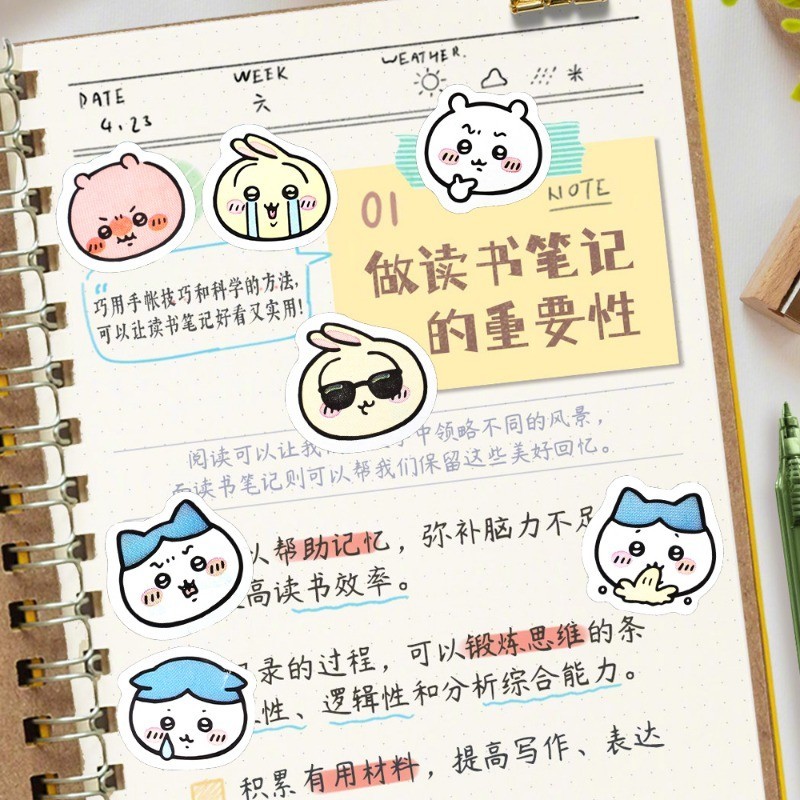 DATE
4.23
WEEK
六
WEATHER.
01
NOTE
做读书笔记
的重要性
“巧用手帐技巧和科学的方法，
可以让读书笔记好看又实用!
阅读可以让我 中领略不同的风景，
读书笔记则可以帮我们保留这些美好回忆。
以帮助记忆，弥补脑力不足
高读书效率。
录的过程，可以锻炼思维的条
性、逻辑性和分析综合能力。
积累有用材料，提高写作、表达